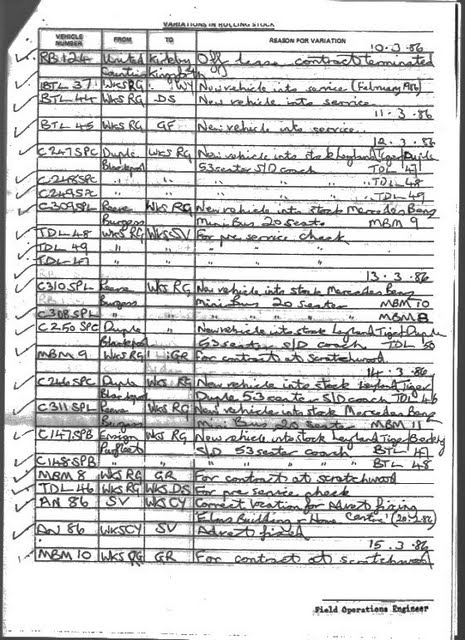 VARIATIONS IN ROLLING STOCK
VEHICLE NUMBER FROM TO REASON FOR VARIATION
10.3.86
RB 124 United Kirkby Off lease contract terminated
Counties
BTL 37 WKS RG WY New vehicle into service (February A86)
BTL 44 WKS RG DS New vehicle into service
11.3.86
BTL 45 WKS RG GF New vehicle into service
12.3.86
C247SPC Duple WKS RG New vehicle into stock Leyland Tiger Duple
Blackpool 53 seater S/D coach TDL 47
C248SPC " " " TDL 48
C249SPC " " " TDL 49
C309SPL Reeve WKS RG New vehicle into stock Mercedes Benz
Burgess Mini Bus 20 seats MBM 9
TDL 48 WKS RG WKS SV For pre service check
TDL 49 " " "
TDL 47 " " "
13.3.86
C310SPL Reeve WKS RG New vehicle into stock Mercedes Benz
Burgess Mini Bus 20 seater MBM 10
C308SPL " " " MBM 8
C250SPC Duple " New vehicle into stock Leyland Tiger Duple
Blackpool 53 seater S/D coach TDL 50
MBM 9 WKS RG GR For contract at Scratchwood
14.3.86
C246SPC Duple WKS RG New vehicle into stock Leyland Tiger
Blackpool Duple 53 seater S/D coach TDL 46
C311SPL Reeve WKS RG New vehicle into stock Mercedes Benz
Burgess Mini Bus 20 seater MBM 11
C147SPB Ensign WKS RG New vehicle into stock Leyland Tiger Berkhof
Purfleet S/D 53 seater coach BTL 47
C148SPB " " " BTL 48
MBM 8 WKS RG GR For contract at Scratchwood
TDL 46 WKS RG WKS DS For pre service check
AN 86 SV WKS CY Correct location for Advert fixing
Building + Home Centre (20.2.86)
AN 86 WKS CY SV Advert fixed
15.3.86
MBM 10 WKS RG GR For contract at Scratchwood
Field Operations Engineer